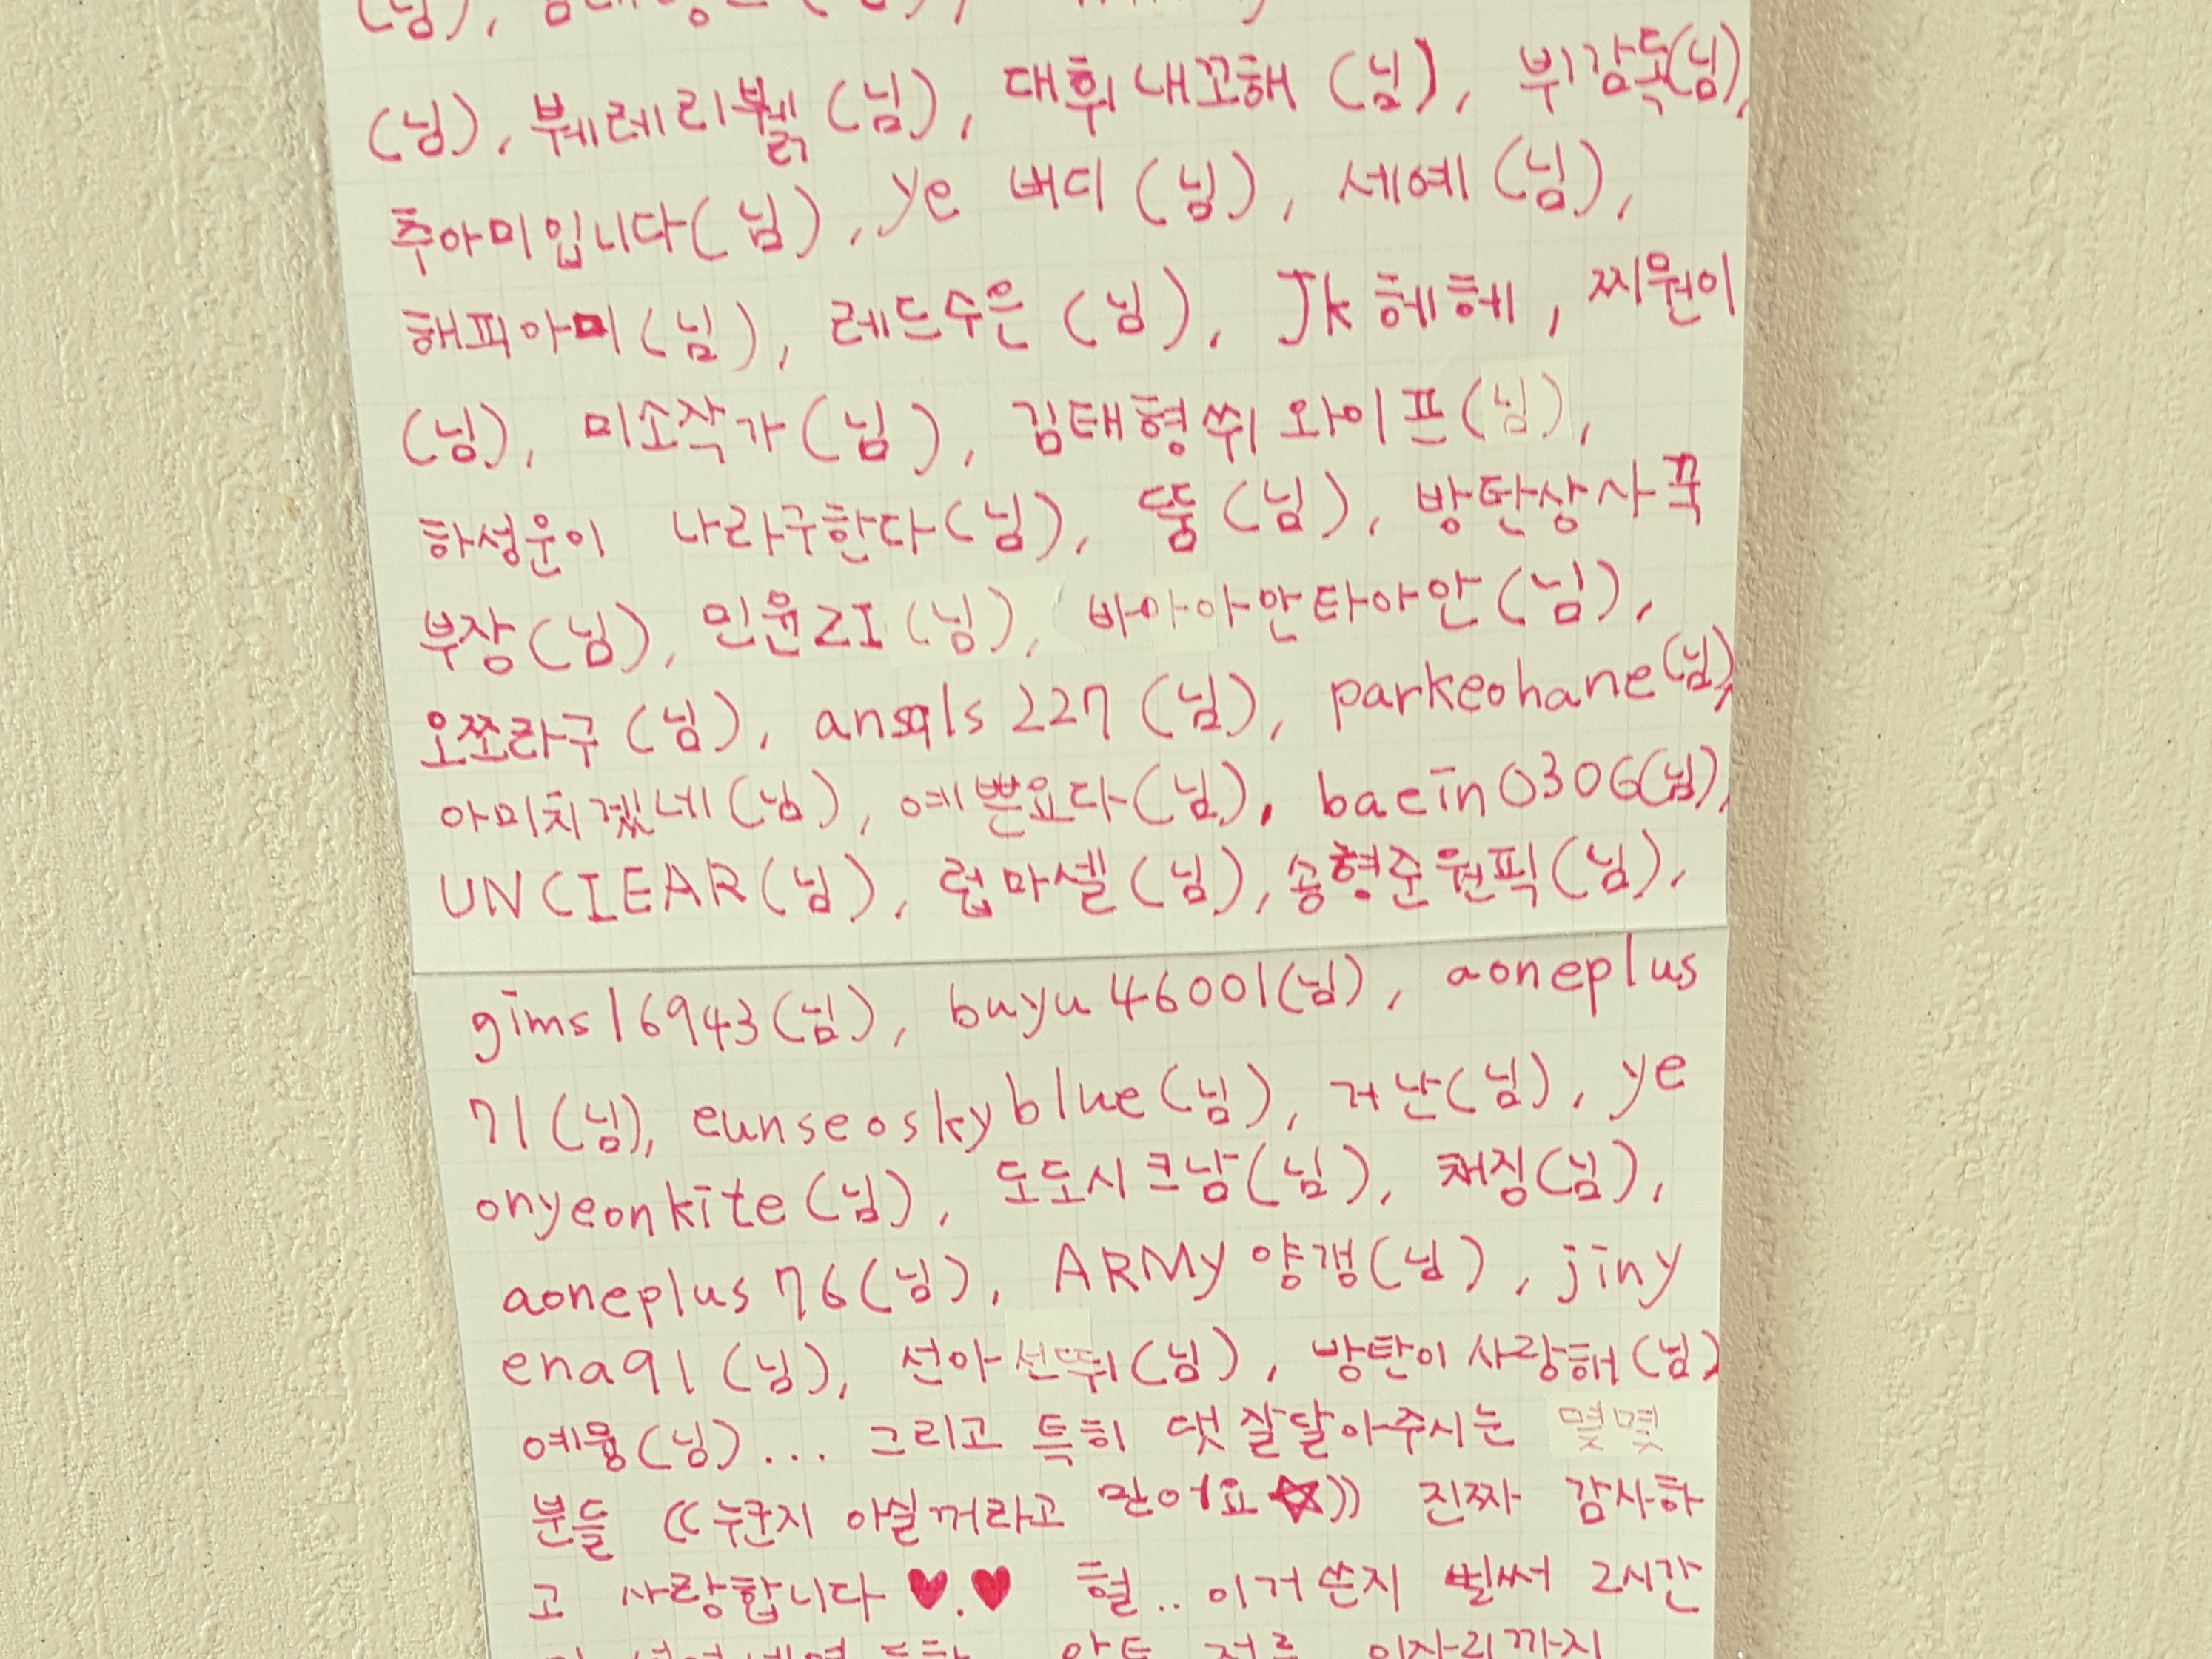 (님), 뷔레리뷁(님), 대휘내꼬해(님), 뷔감독(님),
추아미입니다(님), ye 버디(님), 세예(님),
해피아미(님), 레드수은(님), Jk헤헤, 찌원이
(님), 미소작가(님), 김태형쒸와이프(님),
하성운이 나라구한다(님), 뚱(님), 방탄상사꾹
부장(님), 민윤ZI(님), 바아아안타아안(님),
오쪼라구(님), ansqls227(님), parkeohane(님),
아미치겠네(님), 예쁜요다(님), baein0306(님),
UNCIEAR(님), 럽마셀(님), 송형준원픽(님),
gims16943(님), buyu46001(님), aoneplus
71(님), eunseoskyblue(님), 거난(님), ye
onyeonkite(님), 도도시크남(님), 채징(님),
aoneplus76(님), ARMY양갱(님), jiny
ena91(님), 선아선뛰(님), 방탄이사랑해(님)
예웅(님)... 그리고 특히 댓잘달아주시는 몇몇
분들 ((누군지 아실꺼라고 믿어요☆)) 진짜 감사하
고 사랑합니다♥.♥ 헐.. 이거쓴지 벌써 2시간
이자리까지